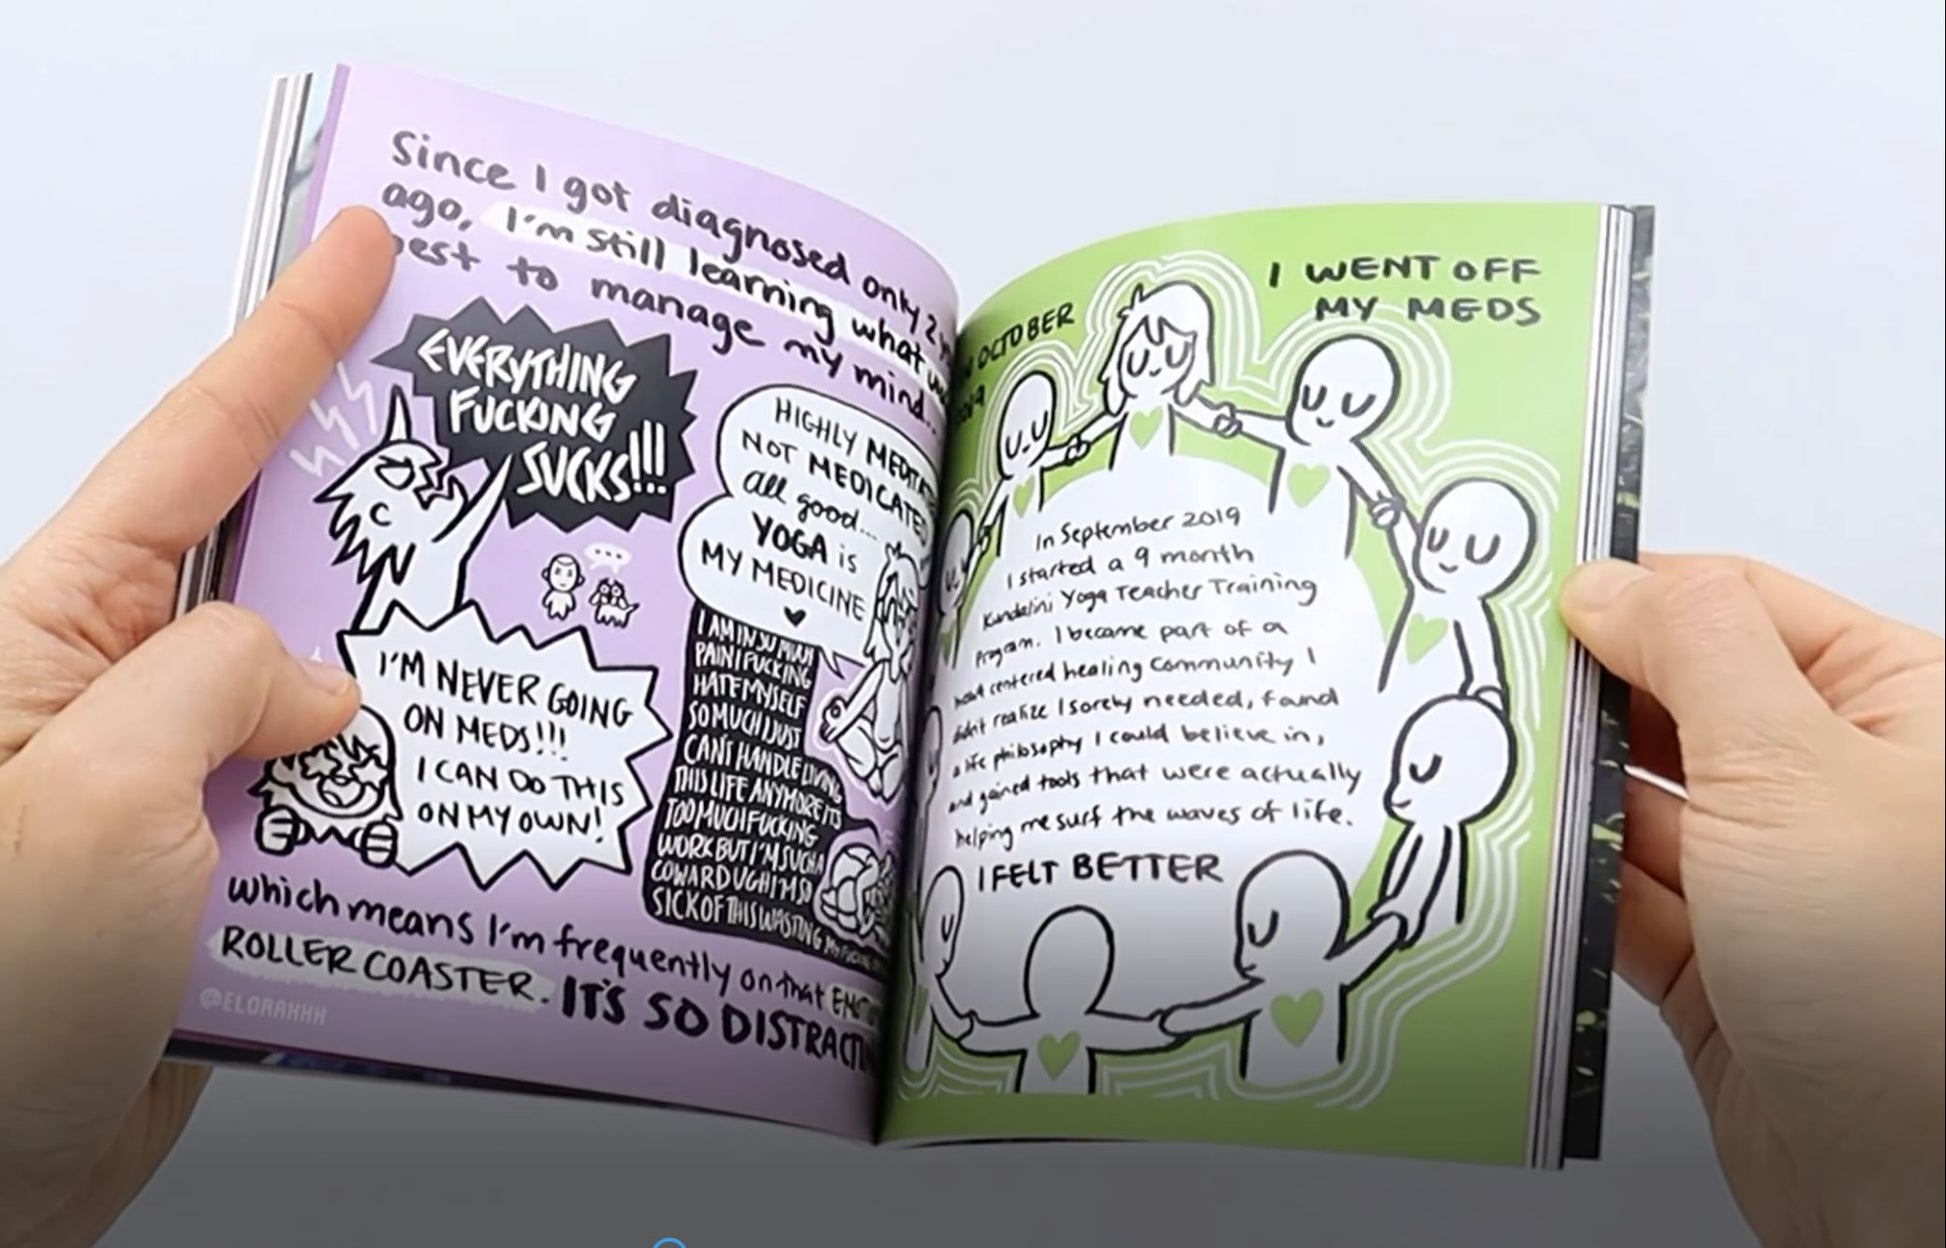 Since I got diagnosed only 2
ago, I'm still learning what
best to manage my mind...
EVERYTHING
FUCKING
SUCKS!!!
HIGHLY
NOT MEDICATED
all good...
YOGA is
MY MEDICINE
...
I AM IN SO MUCH
PAIN I FUCKING
HATE MYSELF
SO MUCH I JUST
CAN'T HANDLE LIVING
THIS LIFE ANYMORE ITS
TOO MUCH FUCKING
WORK BUT I'M SUCH A
COWARD UGH I'M SO
SICK OF THIS WASTING
I'M NEVER GOING
ON MEDS!!!
I CAN DO THIS
ON MY OWN!
which means I'm frequently on that
ROLLER COASTER. IT'S SO
@ELORAHHH
OCTOBER
I WENT OFF
MY MEDS
In September 2019
I started a 9 month
Kundalini Yoga Teacher Training
Program. I became part of a
centered healing community I
didn't realize I sorely needed, found
a life philosophy I could believe in,
and gained tools that were actually
helping me surf the waves of life.
I FELT BETTER